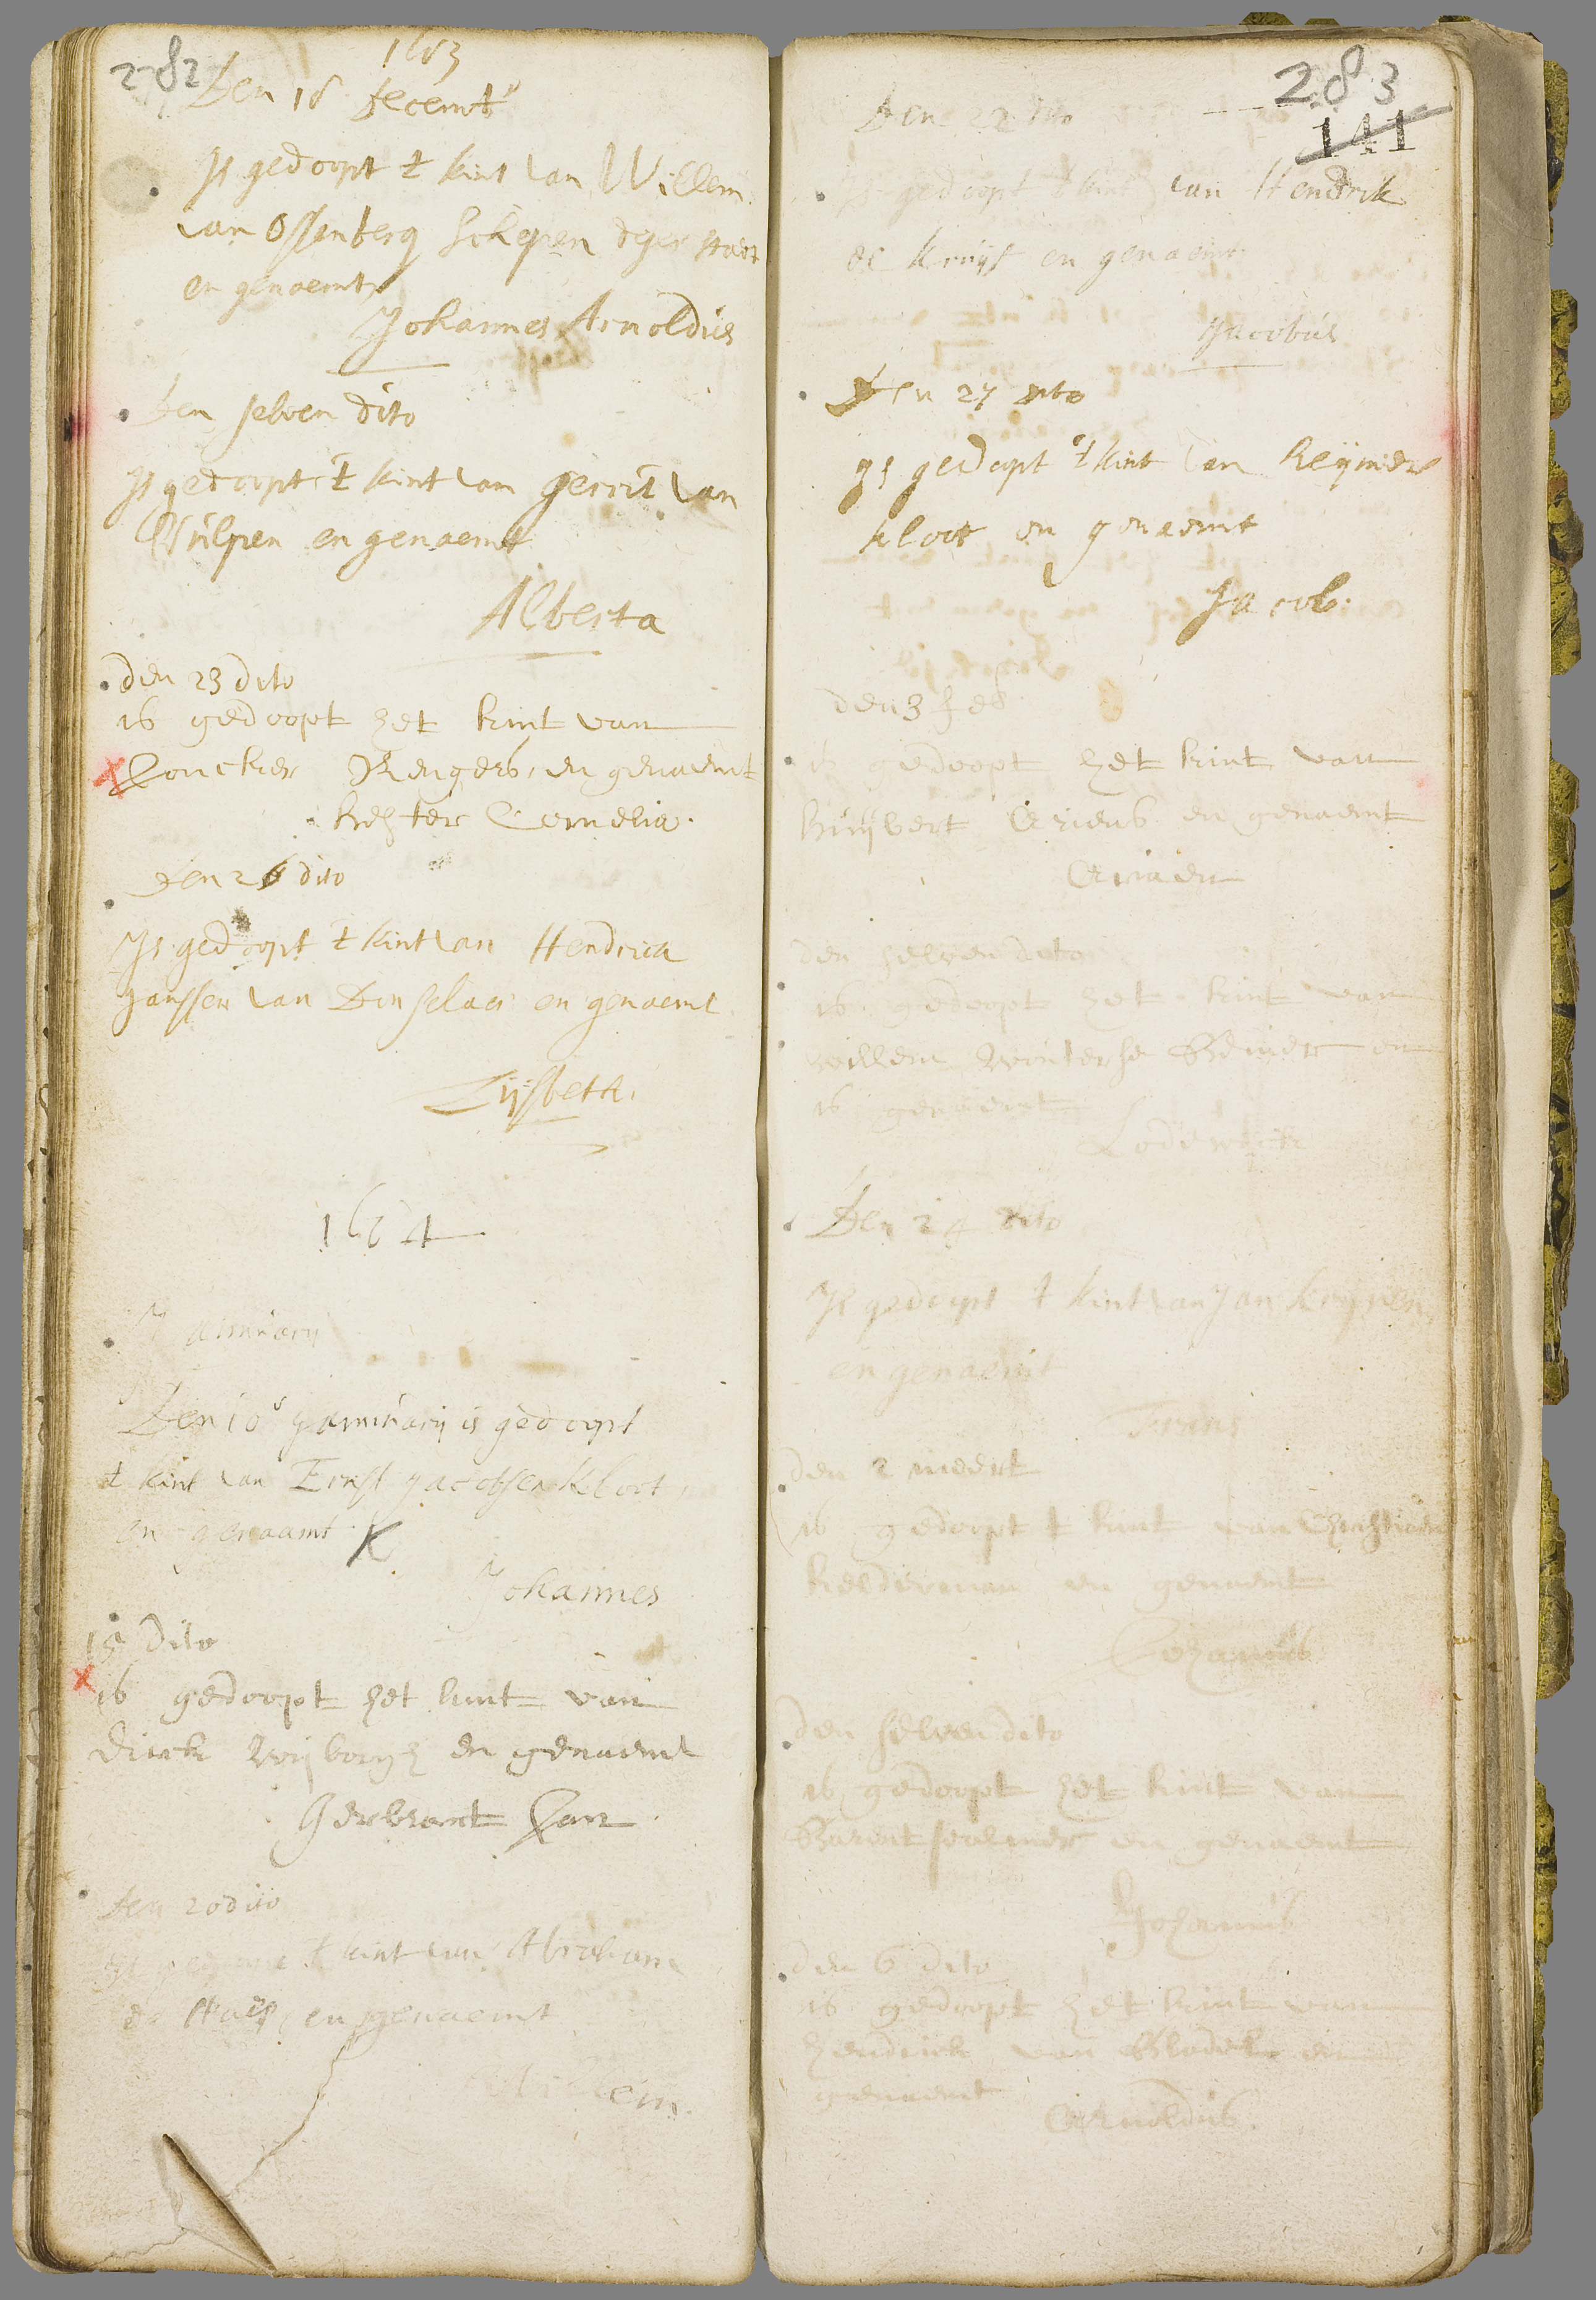 282
1663
Den 18 decembr
Js gedoopt t kint van Willem
van Ossenberg Schepen deser stadt
en genaemt
Johannes Arnoldus
den selven dito
Js gedoopt t kint van gerrit van
Wilpen en genaemt
Alberta
den 23 dito
is gedoopt het kint van
Joncker Rengers, en genaemt
Cornelia.
den 26 dito
Js gedoopt t kint van Hendrick
Janssen van Dinselaer en genaemt
Lijsbeth.
1664
Januarij
Den 10 Januarij is gedoopt
t kint van Ernst Jacobsen kloot
en genaamt
Johannes
18 dito
is gedoopt het kint van
dirck wijborgh en genaemt
Gerbrant Jan
den 20 dito
t kint van Abraham
de Haes en genaemt
283
141
Den 22 dito
gedoopt t kint van Hendrik
de Kruijf en genaemt
Jacobus
Den 27 dito
Js gedoopt 't kint van Reijnder
kloot en genaemt
Jacob.
den 3 feb
is gedoopt het kint van
Huijbert Ariens en genaemt
Ariaen
den selven dito
is gedoopt het kint van
willem en
is genaemt
Lodewick
Den 24 dito
Js gedoopt t kint van Jan
en genaemt
Frans
den 2 meert
is gedoopt t kint van Christiaen
kelderman en genaemt
Johannes
den selven dito
is gedoopt het kint van
Barent en genaemt
Johannes
den 6 dito
is gedoopt het kint van
hendrick van en
genaemt
Arnoldus.